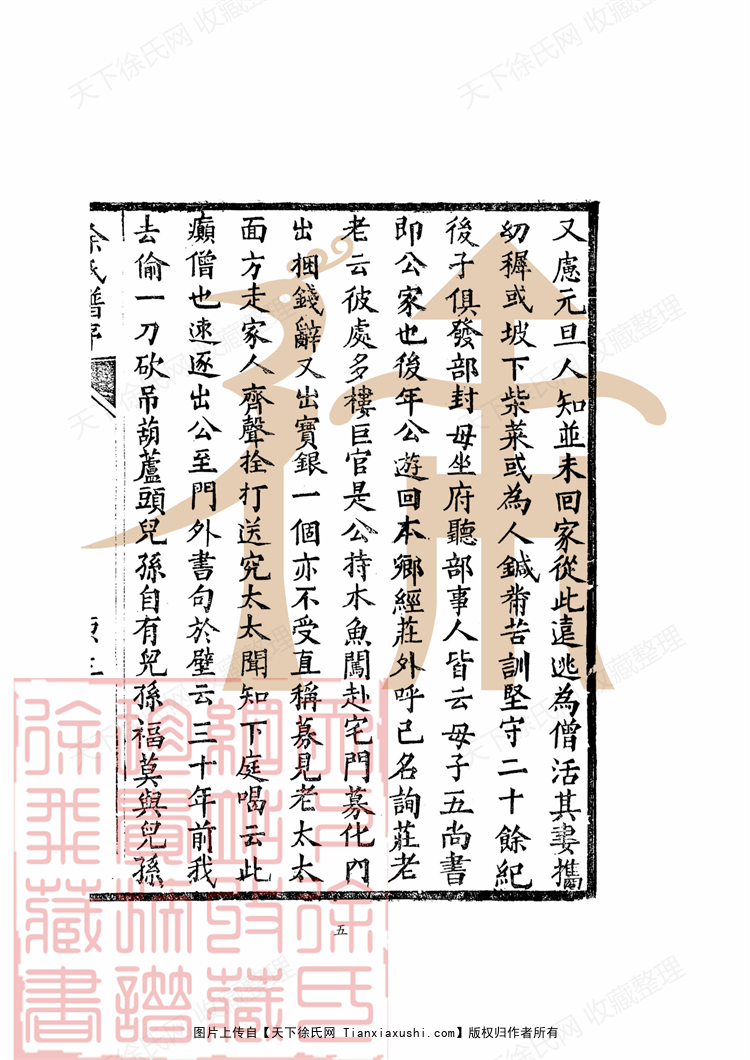 又慮元旦人知並未回家從此遠逃為僧活其妻攜
幼穉或坡下柴菜或為人鍼黹苦訓堅守二十餘紀
後子俱發部封母坐府聽部事人皆云母子五尚書
即公家也後年公遊回本鄉經莊外呼己名詢莊老
老云彼處多樓巨官是公持木魚闖赴宅門募化門
出捆錢辭又出寶銀一個亦不受直稱募見老太太
面方走家人齊聲拴打送究太太聞知下庭喝云此
癲僧也速逐出公至門外書句於壁云三十年前我
去偷一刀砍吊葫蘆頭兒孫自有兒孫福莫與兒孫
徐氏譜序
五
天下徐氏网 收藏整理
图片上传自【天下徐氏网 Tianxiaxushi.com】版权归作者所有